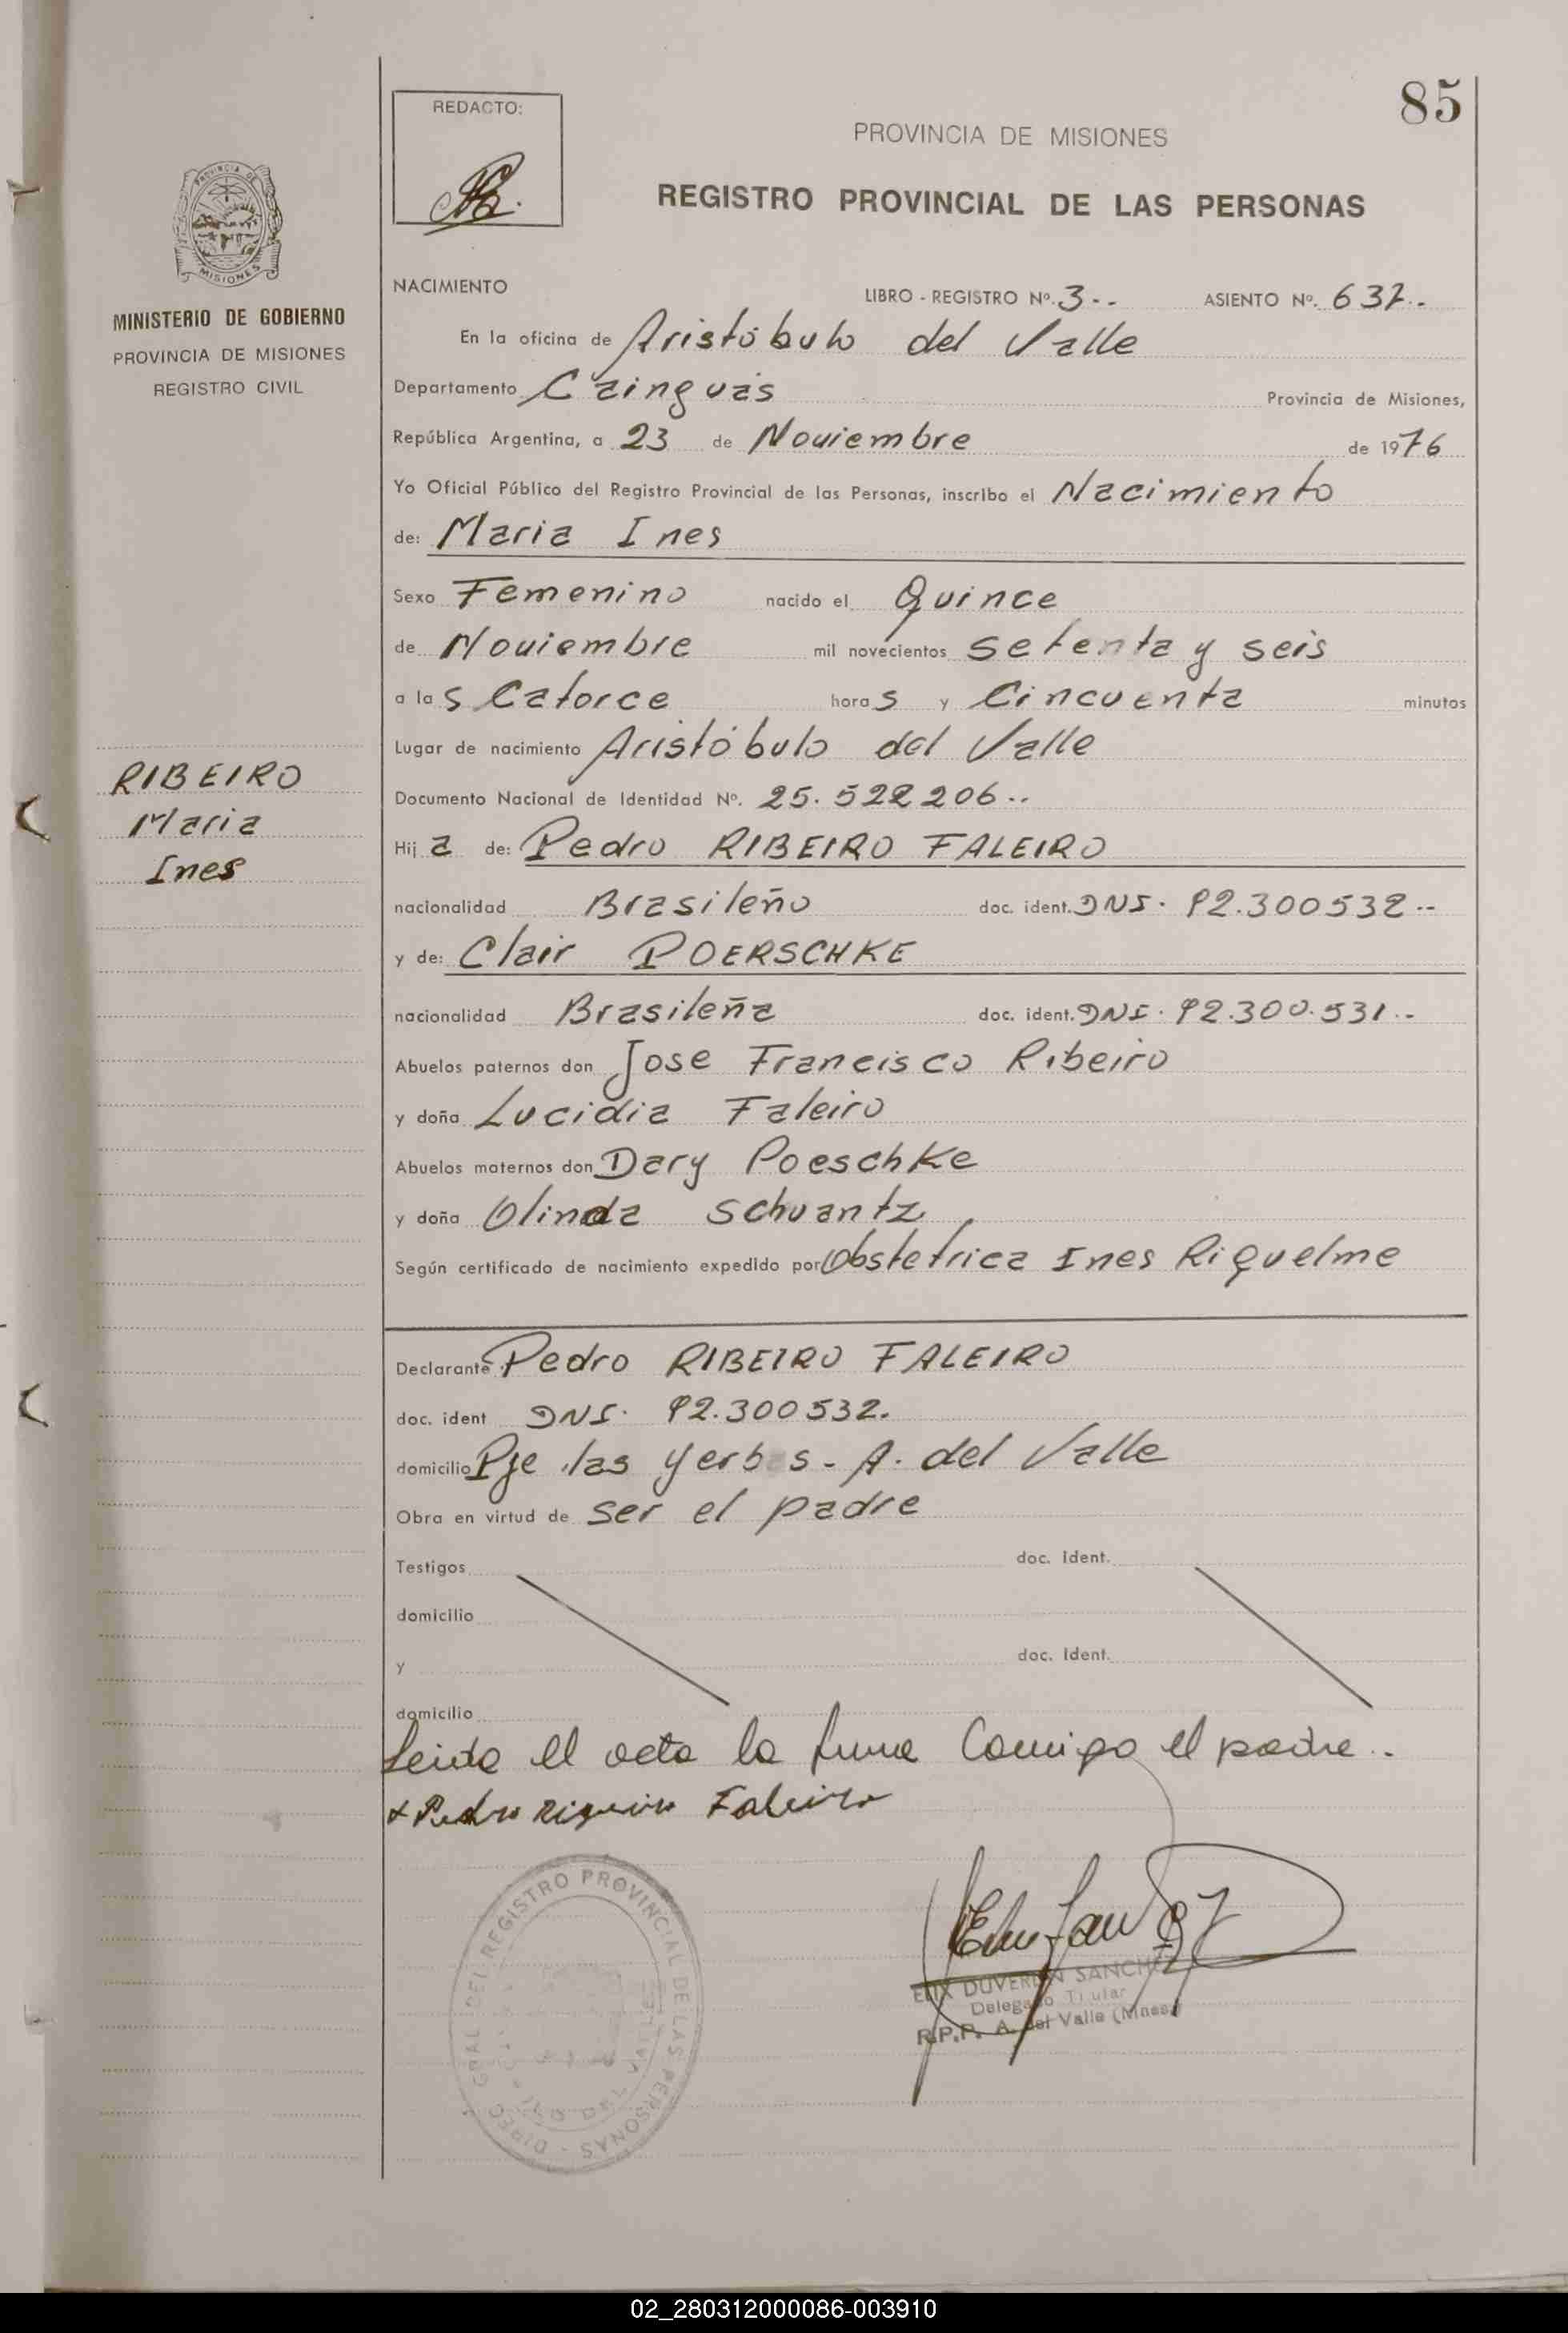 85
REDACTO:
PROVINCIA DE MISIONES
REGISTRO PROVINCIAL DE LAS PERSONAS
PROVINCIA DE MISIONES
MINISTERIO DE GOBIERNO
PROVINCIA DE MISIONES
REGISTRO CIVIL
NACIMIENTO LIBRO - REGISTRO Nº. 3-- ASIENTO Nº. 637--
En la oficina de Aristóbulo del Valle
Departamento Cainguás Provincia de Misiones,
República Argentina, a 23 de Noviembre de 1976
Yo Oficial Público del Registro Provincial de las Personas, inscribo el Nacimiento
de: Maria Ines
Sexo Femenino nacido el Quince
de Noviembre mil novecientos setenta y seis
a las Catorce horas y Cincuenta minutos
Lugar de nacimiento Aristóbulo del Valle
RIBEIRO
Maria
Ines
Documento Nacional de Identidad Nº. 25.522206--
Hija de: Pedro RIBEIRO FALEIRO
nacionalidad Brasileño doc. ident. DNI. 92.300532--
y de: Clair POERSCHKE
nacionalidad Brasileña doc. ident. DNI. 92.300.531--
Abuelos paternos don Jose Francisco Ribeiro
y doña Lucidia Faleiro
Abuelos maternos don Dary Poeschke
y doña Olinda Schuantz
Según certificado de nacimiento expedido por Obstetrica Ines Riquelme
Declarante Pedro RIBEIRO FALEIRO
doc. ident DNI. 92.300532.
domicilio Pje las yerbas - A. del Valle
Obra en virtud de ser el padre
Testigos doc. ident.
domicilio
y doc. ident.
domicilio
Leida el acta la firma Comigo el padre..
x Pedro Faleiro
DIREC. GRAL. DEL REGISTRO PROVINCIAL DE LAS PERSONAS
DUVERLIN SANCHEZ
Delegado Titular
R.P.P. A. del Valle (Mnes)
02_280312000086-003910